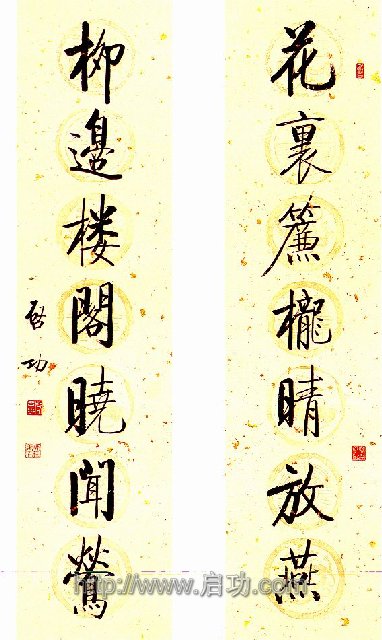 花裏簾櫳晴放燕
柳邊楼閣曉聞鶯
启功
http://www.启功.com